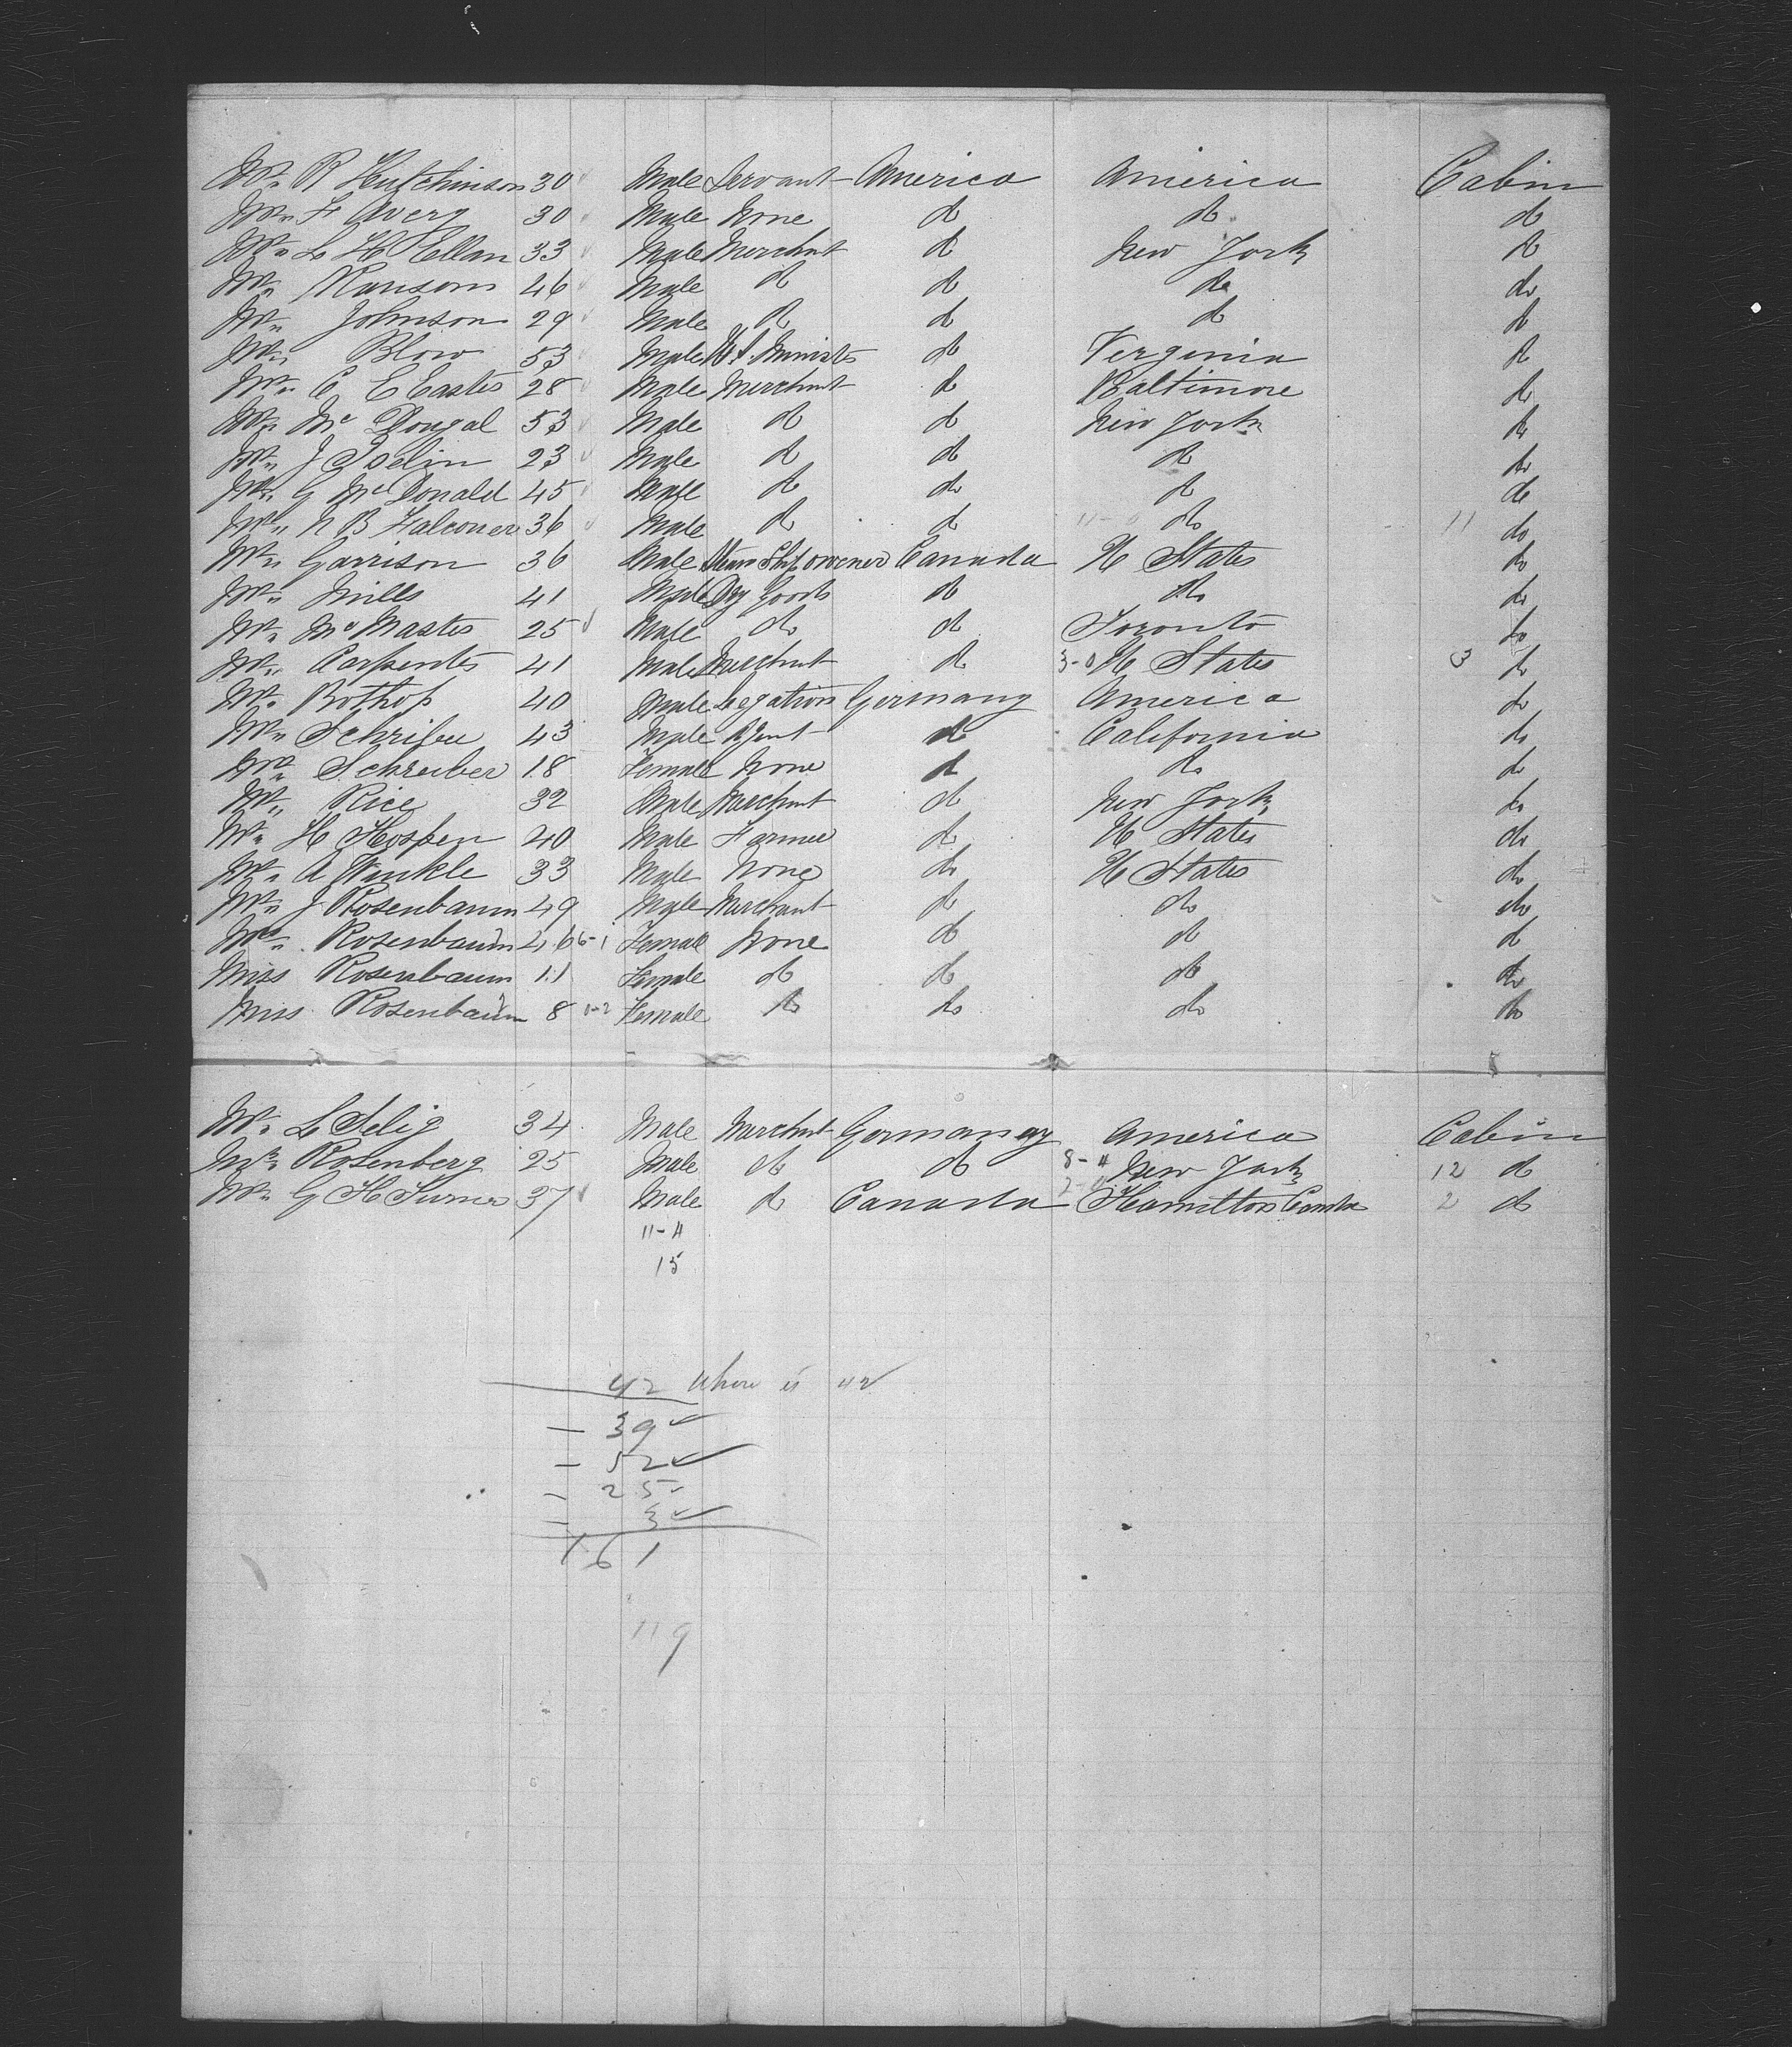 Mr. R Hutchinson 30 Male Servant America America Cabin
Mr. F Avery 30 Male None do do do
Mr. L H Hellan 33 Male Merchant do New York do
Mr. Ransom 46 Male do do do do
Mr. Johnson 29 Male do do do do
Mr. Blow 53 Male U.S. Ministr do Verginia do
Mr. C E Eastes 28 Male Merchant do Baltimore do
Mr. Mc Dougal 53 Male do do New York do
Mr. J Iselin 23 Male do do do do
Mr. G McDonald 45 Male do do do do
Mr. N B Falconer 36 Male do do 11-0 do 11 do
Mr. Garrison 36 Male Steam Ship owner Canada U States do
Mr. Mills 41 Male Dry Goods do do do
Mr. McMaster 25 Male do do Toronto do
Mr. Carpenter 41 Male Merchant do 3-0 U States 3 do
Mr. Male Legation Germany America do
Mr. 43 Male Agent do California do
Mrs. Schreiber 18 Female None do do do
Mr. Rice 32 Male Merchant do New York do
Mr. H Hospen 40 Male Farmer do U States do
Mr. A Winkle 33 Male None do U States do
Mr. J Rosenbaum 49 Male Merchant do do do
Mrs. Rosenbaum 46 6-1 Female None do do do
Miss Rosenbaum 11 Female do do do do
Miss Rosenbaum 8 0-2 Female do do do do
Mr. L Selig 34 Male Merchant Germany America Cabin
Mr. Rosenberg 25 Male do do 8-4 New York 12 do
Mr. G H Turner 37 Male do Canada 2-0 Hamilton Canada 2 do
11-4
15
42 where is 42
- 39
- 52
- 25
- 3
161
119